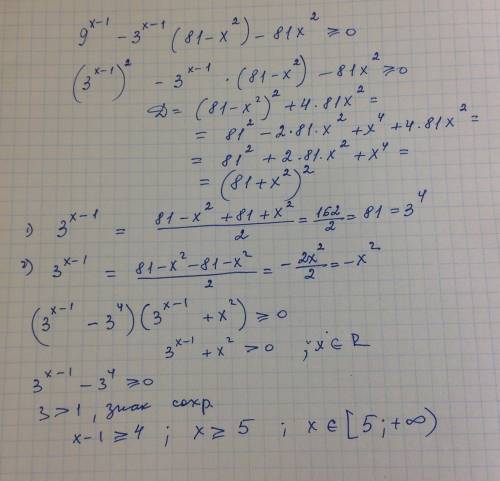 9^(x-1) - 3^(x-1) (81 - x²) - 81x² ⩾ 0
(3^(x-1))² - 3^(x-1) · (81 - x²) - 81x² ⩾ 0
D = (81 - x²)² + 4·81x² =
= 81² - 2·81·x² + x⁴ + 4·81x² =
= 81² + 2·81·x² + x⁴ =
= (81 + x²)²
1) 3^(x-1) = (81 - x² + 81 + x²)/2 = 162/2 = 81 = 3⁴
2) 3^(x-1) = (81 - x² - 81 - x²)/2 = - 2x²/2 = - x²
(3^(x-1) - 3⁴)(3^(x-1) + x²) ⩾ 0
3^(x-1) + x² > 0 ; x ∈ R
3^(x-1) - 3⁴ ⩾ 0
3 > 1, знак сохр.
x - 1 ⩾ 4 ; x ⩾ 5 ; x ∈ [5 ; +∞)